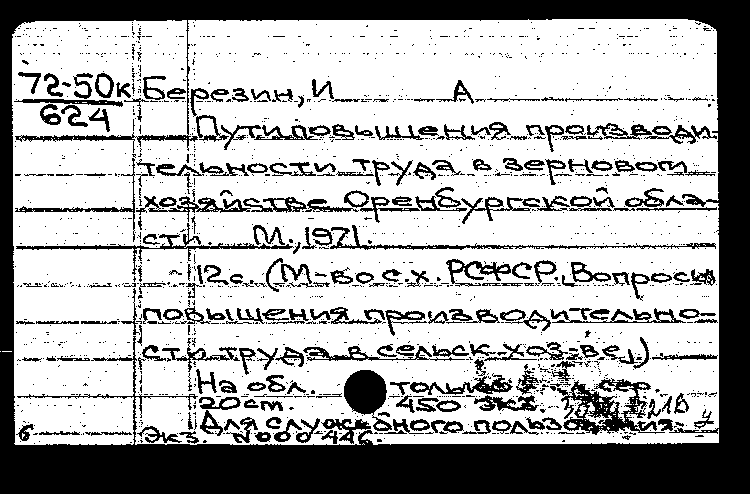 72-50к Березин, И А
624
Пути повышения производи-
тельности труда в зерновом
хозяйстве Оренбургской обла-
сти. М., 1971.
12 с. (М-во с.х. РСФСР., Вопросы
повышения производительно-
сти труда в сельск.хоз-ве,)
На обл. только сер.
20 ст. 450 экз.
Для служебного пользования.
б Экз. №000446.